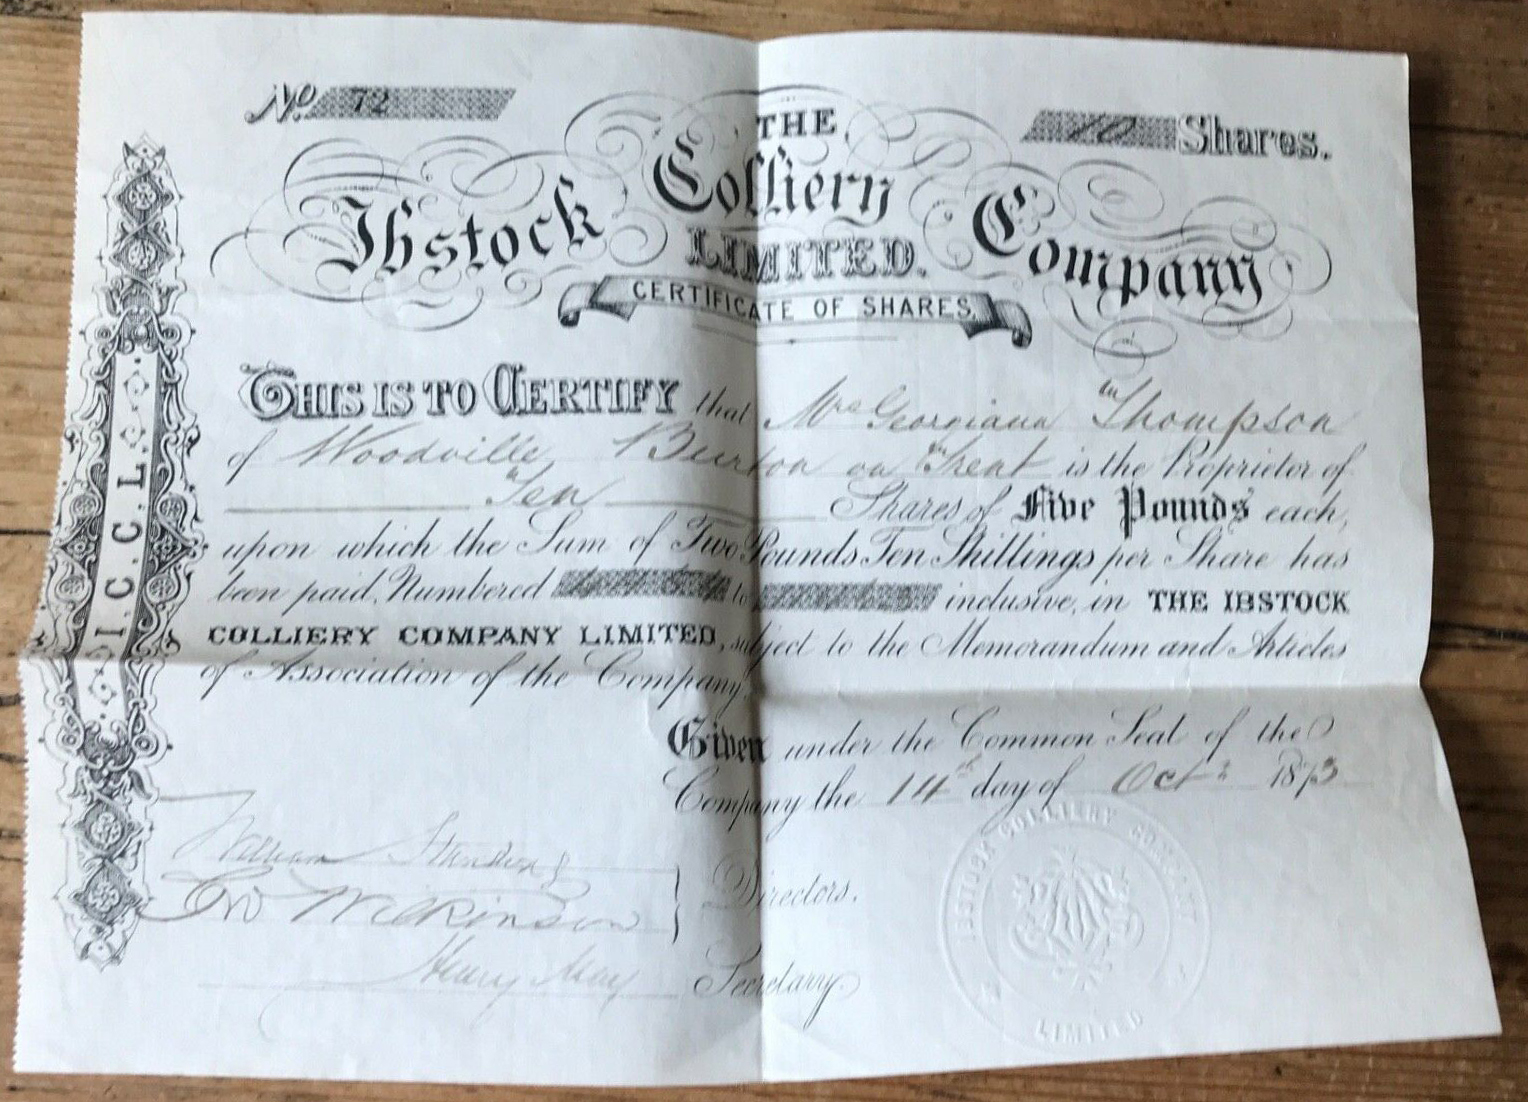 No. 72
10 Shares.
THE
Ibstock Colliery Company
LIMITED.
CERTIFICATE OF SHARES.
THIS IS TO CERTIFY that Mrs Georgiana Thompson
of Woodville, Burton on Trent is the Proprietor of
Ten Shares of Five Pounds each,
upon which the Sum of Two Pounds Ten Shillings per Share has
been paid, Numbered to inclusive, in THE IBSTOCK
COLLIERY COMPANY LIMITED, subject to the Memorandum and Articles
of Association of the Company.
Given under the Common Seal of the
Company the 14th day of Oct 1873
William
Geo Wilkinson
Directors.
Henry May
Secretary.
I. C. C. L.
IBSTOCK COLLIERY COMPANY
LIMITED